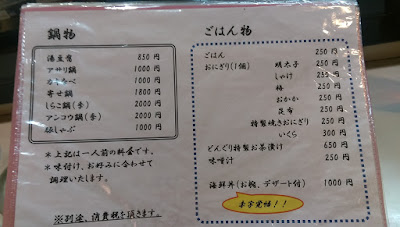 鍋物
湯豆腐 850円
アサリ鍋 1000円
寄せ鍋 1800円
しらこ鍋(冬) 2000円
アンコウ鍋(冬) 2000円
豚しゃぶ 1000円
*上記は一人前の料金です。
*味付け、お好みに合わせて
調理いたします。
※別途、消費税を頂きます。
ごはん物
ごはん 250円
おにぎり(1個) 明太子 250円
しゃけ 250円
梅 250円
おかか 250円
昆布 250円
特製焼きおにぎり 250円
いくら 300円
どんぐり特製お茶漬け 650円
味噌汁 250円
海鮮丼(お椀、デザート付) 1000円
赤字覚悟!!